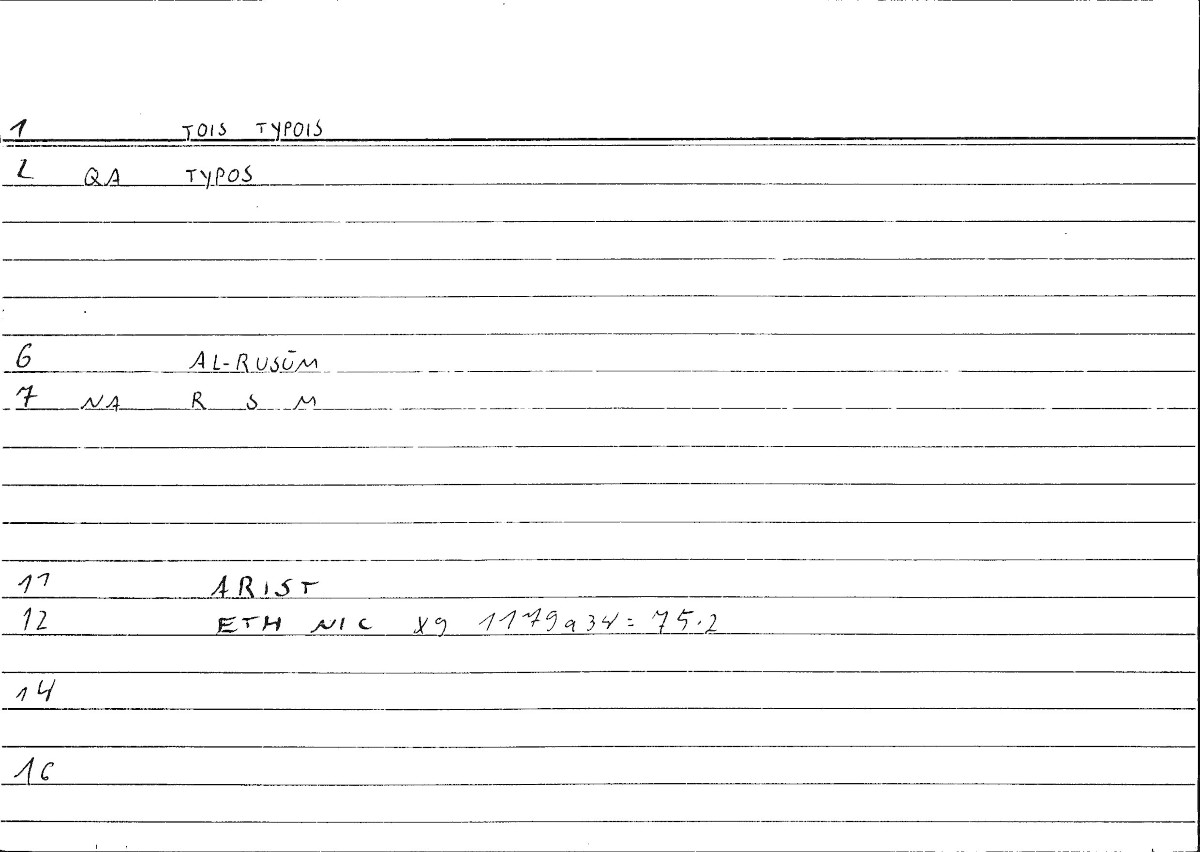 1 TOIS TYPOIS
2 QA TYPOS
6 AL-RUSŪM
7 NA R S M
11 ARIST
12 ETH NIC X9 1179a34=75.2
14
16